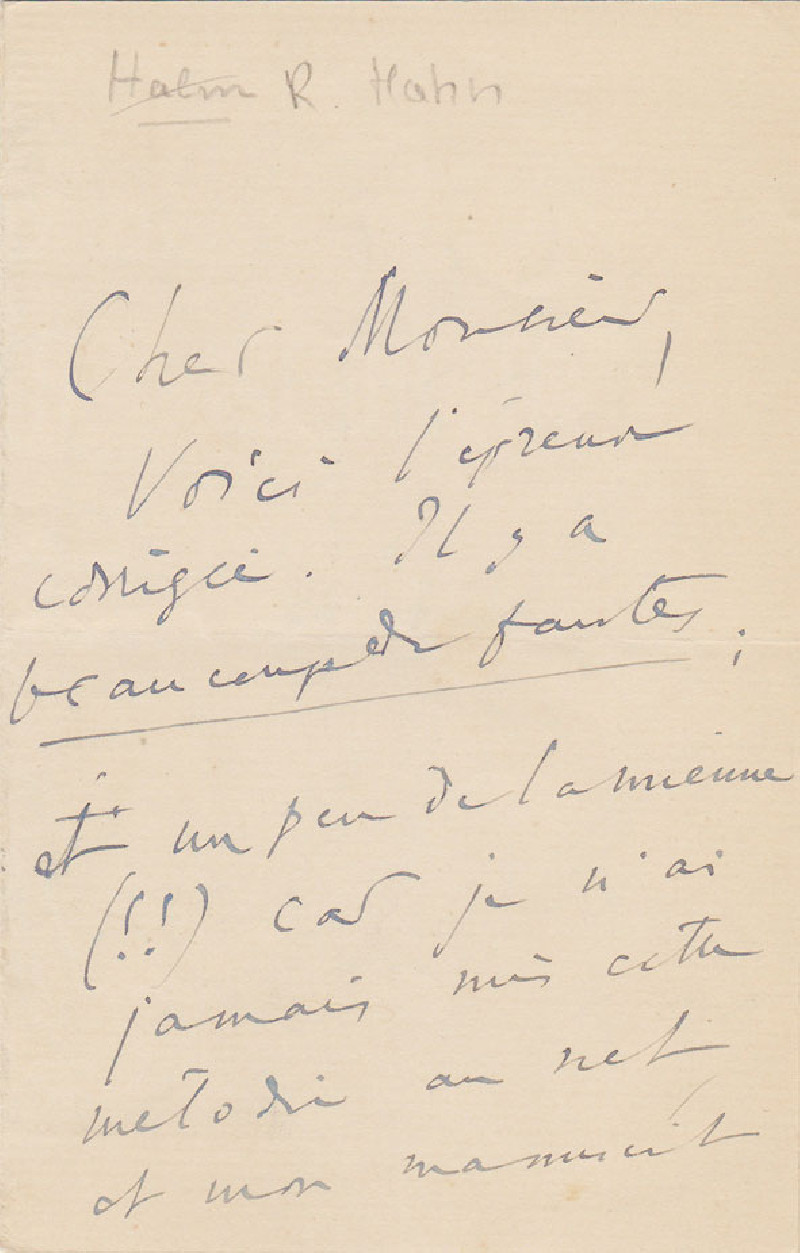 Hahn R. Hahn
Cher Monsieur,
Voici l'épreuve
corrigée. Il y a
beaucoup de fautes,
et un peu de la mienne
(!!) car je n'ai
jamais mis cette
mélodie au net,
et mon manuscrit